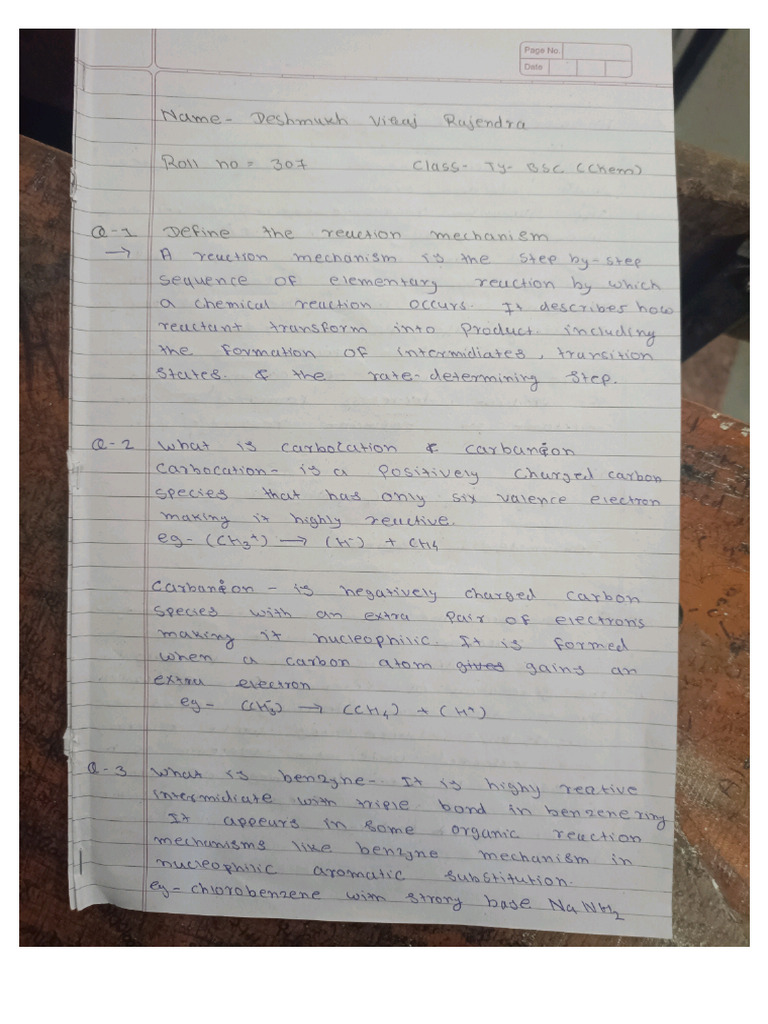 Page No.
Date
Name- Deshmukh Viraj Rajendra
Roll no = 307 Class- Ty- BSC (Chem)
Q-1 Define the reaction mechanism
→ A reaction mechanism is the step by-step
sequence of elementary reaction by which
a chemical reaction occurs. It describes how
reactant transform into product including
the formation of intermidiates, transition
states. & the rate-determining step.
Q-2 What is carbocation & carbanion
Carbocation- is a positively charged carbon
species that has only six valence electron
making it highly reactive.
eg- (CH3+) → (H-) + CH4
Carbanion - is negatively charged carbon
species with an extra pair of electrons
making it nucleophilic. It is formed
when a carbon atom gives gains an
extra electron
eg- (CH3-) → (CH4) + (H+)
Q-3 What is benzyne- It is highy reative
intermidiate with triple bond in benzene ring
It appears in some organic reaction
mechanisms like benzyne mechanism in
nucleophilic aromatic substitution.
eg- chlorobenzene with strong base NaNH2